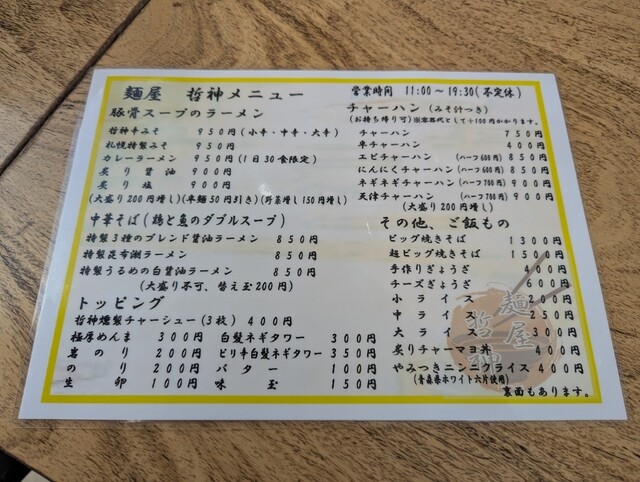 麺屋 哲神メニュー
豚骨スープのラーメン
哲神辛みそ 950円(小辛・中辛・大辛)
札幌特製みそ 950円
カレーラーメン 950円(1日30食限定)
炙り醤油 900円
炙り塩 900円
(大盛り200円増し)(半麺50円引き)(野菜増し150円増し)
中華そば(鶏と魚のダブルスープ)
特製3種のブレンド醤油ラーメン 850円
特製昆布潮ラーメン 850円
特製うるめの白醤油ラーメン 850円
(大盛り不可、替え玉200円)
トッピング
哲神燻製チャーシュー(3枚) 400円
極厚めんま 300円 白髪ネギタワー 300円
岩のり 200円 ピリ辛白髪ネギタワー 350円
のり 200円 バター 100円
生卵 100円 味玉 150円
営業時間 11:00~19:30(不定休)
チャーハン(みそ汁つき)
(お持ち帰り可)※容器代として+100円かかります。
チャーハン 750円
半チャーハン 400円
エビチャーハン (ハーフ600円) 850円
にんにくチャーハン (ハーフ600円) 850円
ネギネギチャーハン (ハーフ700円) 900円
天津チャーハン (ハーフ700円) 900円
(大盛り200円増し)
その他、ご飯もの
ビッグ焼きそば 1300円
超ビッグ焼きそば 1500円
手作りぎょうざ 400円
チーズぎょうざ 600円
小ライス 200円
中ライス 250円
大ライス 300円
炙りチャーマヨ丼 400円
やみつきニンニクライス 400円
(青森県産ホワイト六片使用)
裏面もあります。
麺屋
哲神